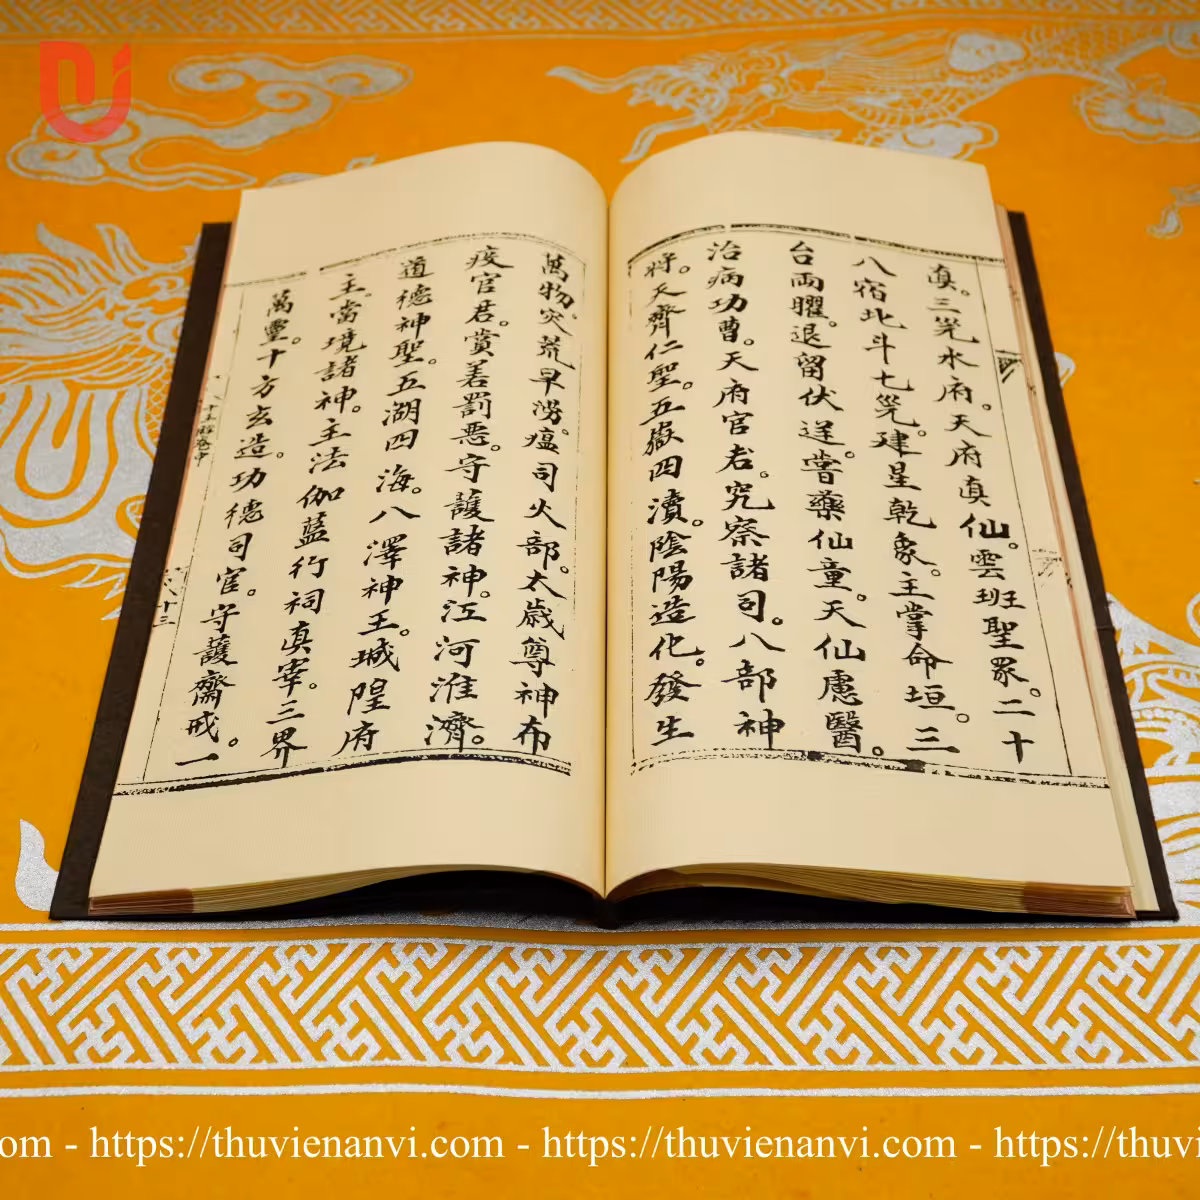 真。三凳水府。天府真仙。雲班聖眾。二十
八宿北斗七凳。建星乾象。主掌命垣。三
台兩曜。退留伏逆。嘗藥仙童。天仙慮醫。
治病功曹。天府官君。究察諸司。八部神
將。天齊仁聖。五嶽四瀆。陰陽造化。發生
萬物。灾荒旱澇。瘟司火部。太歲尊神布
疫官君。賞善罰惡。守護諸神。江河淮濟。
道德神聖。五湖四海。八澤神王。城隍府
主。當境諸神。主法伽藍行祠真宰。三界
萬靈。十方玄造。功德司官。守護齋戒。一
八十三
https://thuvienanvi.com - https://thuvienanvi.com - https://thuvi